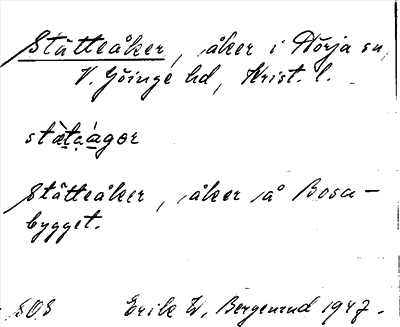 Stätteåker, åker i Nörja sn,
V. Göinge hd, Krist. l.
stä̀ta̠ágər
Stätteåker, åker å Bosa-
bygget.
808 Erik W. Bergenrud 1947.